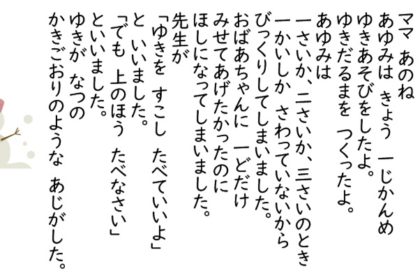 ママ あのね
あゆみは きょう 一じかんめ
ゆきあそびをしたよ。
ゆきだるまを つくったよ。
あゆみは
一さいか、二さいか、三さいのとき
一かいしか さわっていないから
びっくりしてしまいました。
おばあちゃんに 一どだけ
みせてあげたかったのに
ほしになってしまいました。
先生が
「ゆきを すこし たべていいよ」
と いいました。
「でも 上のほう たべなさい」
といいました。
ゆきが なつの
かきごおりのような あじがした。